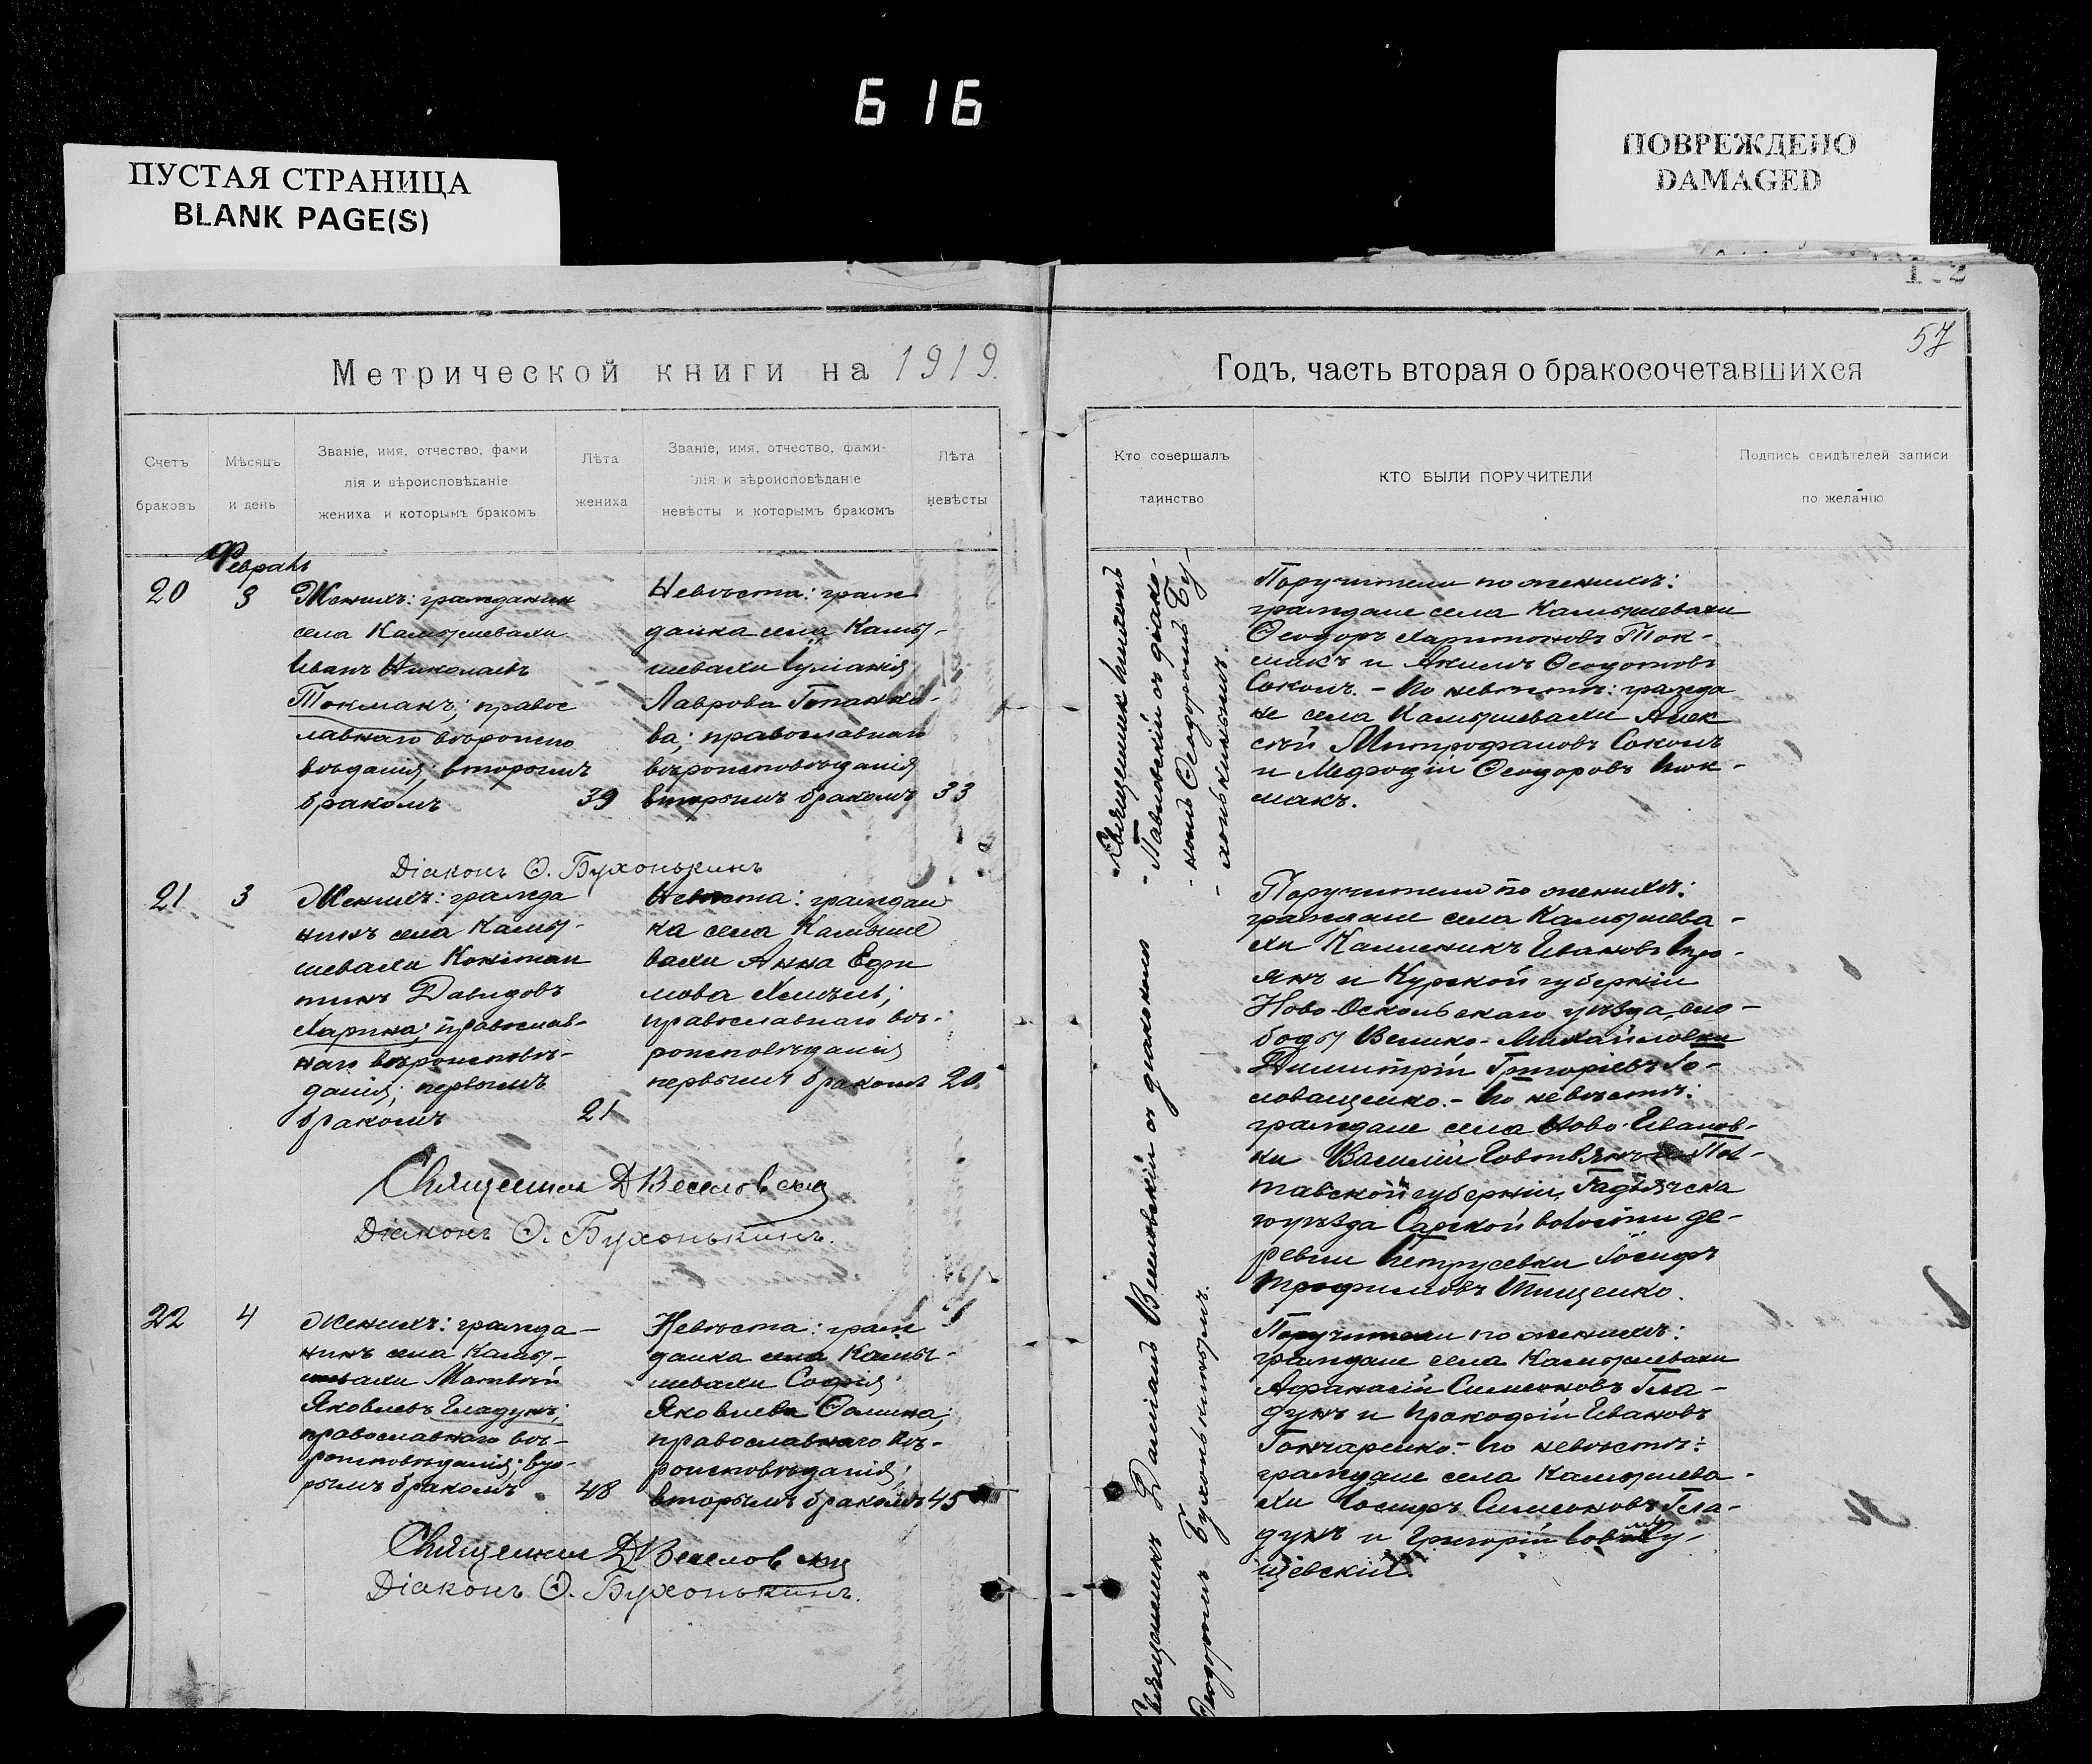 616
ПУСТАЯ СТРАНИЦА
BLANK PAGE(S)
ПОВРЕЖДЕНО
DAMAGED
57
Метрической книги на 1919.
Годъ, часть вторая о бракосочетавшихся
Счетъ
браковъ
Мѣсяцъ
и день
Званіе, имя, отчество, фами
лія и вѣроисповѣданіе
жениха и которымъ бракомъ
Лѣта
жениха
Званіе, имя, отчество, фами-
лія и вѣроисповѣданіе
невѣсты и которымъ бракомъ
Лѣта
невѣсты
Кто совершалъ
таинство
КТО БЫЛИ ПОРУЧИТЕЛИ
Подпись свидѣтелей записи
по желанію
Февраль
20
3
Женихъ: гражданин
села Камышевахи
Иванъ Николаевъ
Токмакъ; правос
лавнаго вѣроиспо
вѣданія; вторымъ
бракомъ
39
Невѣста: граж
данка села Камы-
шевахи Іуліанія
Лаврова
ва; православнаго
вѣроисповѣданія
вторымъ бракомъ
33
Діаконъ Ѳ. Бухонькинъ
Священник
Павловскій съ діако-
номъ Ѳеодоромъ Бу-
хонькинымъ.
Поручители по женихѣ:
граждане села Камышевахи
Ѳеодоръ Харитоновъ Ток-
макъ и Акимъ Ѳеодотовъ
Соколъ. - По невѣстѣ: гражда
не села Камышевахи Алек
сѣй Митрофановъ Соколъ
и Меѳодій Ѳеодоровъ Ток-
макъ.
21
3
Женихъ: гражда
нинъ села Камы-
шевахи Констан
тинъ Давидовъ
Харина; православ-
наго вѣроисповѣ-
данія; первымъ
бракомъ
21
Невѣста: граждан
ка села Камыше
вахи Анна Ефи
мова
православнаго вѣ-
роисповѣданія
первымъ бракомъ
20
Священник Д Веселовскій
Діаконъ Ѳ. Бухонькинъ.
Поручители по женихѣ:
граждане села Камышева-
хи Каленикъ Ивановъ
янъ и Курской губерніи
Ново-Оскольскаго уѣзда, сло-
боды Велико-Михайловки
Димитрій Григоріевъ Го-
ловащенко. - По невѣстѣ:
граждане села Ново-Иванов-
ки Василій и Пол-
тавской губерніи, Гадячска
го уѣзда Сарской волости де-
ревни Петрусевки Іосифъ
Трофимовъ Тищенко.
22
4
Женихъ: гражда-
нинъ села Камы-
шевахи Матвѣй
Яковлевъ Гладунъ;
православнаго вѣ-
роисповѣданія; вто-
рымъ бракомъ
48
Невѣста: граж
данка села Камы-
шевахи Софія
Яковлева Ѳомина;
православнаго вѣ-
роисповѣданія;
вторымъ бракомъ
45
Священник Д Веселовскій
Діаконъ Ѳ. Бухонькинъ.
Священникъ Даміанъ Веселовскій съ діакономъ
Ѳеодоромъ Бухонькинымъ.
Поручители по женихѣ:
граждане села Камышевахи
Афанасій Симеоновъ Гла-
дунъ и Прокофій Ивановъ
Гончаренко. - По невѣстѣ:
граждане села Камышева-
хи Іосифъ Симеоновъ Гла-
дунъ и Григорій
щевскій.